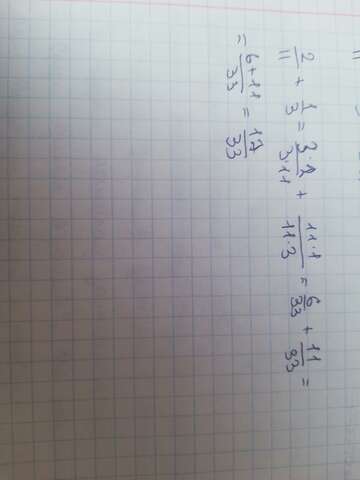 2/11 + 1/3 = 3·2/3·11 + 11·1/11·3 = 6/33 + 11/33 =
= 6+11/33 = 17/33